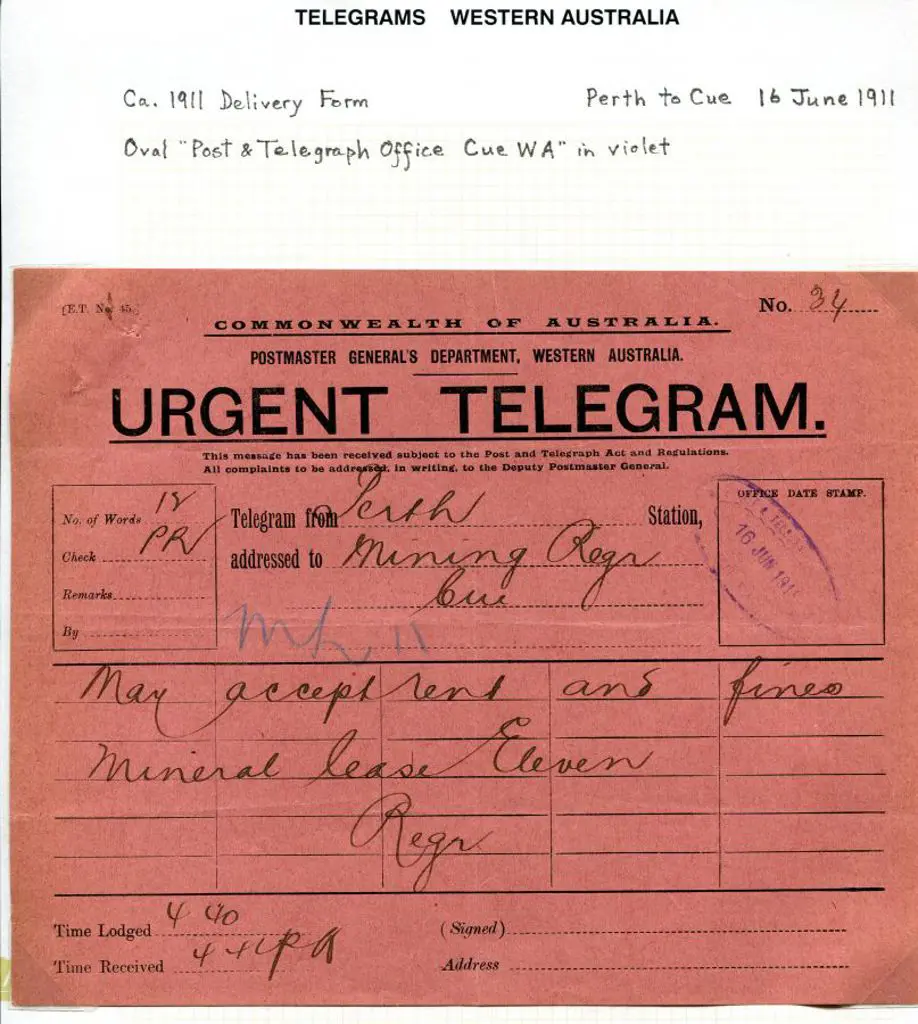 TELEGRAMS WESTERN AUSTRALIA
Ca. 1911 Delivery Form
Perth to Cue 16 June 1911
Oval "Post & Telegraph Office Cue WA" in violet
[E.T. No. 45.]
No. 34
COMMONWEALTH OF AUSTRALIA.
POSTMASTER GENERAL'S DEPARTMENT, WESTERN AUSTRALIA.
URGENT TELEGRAM.
This message has been received subject to the Post and Telegraph Act and Regulations.
All complaints to be addressed, in writing, to the Deputy Postmaster General.
No. of Words
Check PR
Remarks
By
Telegram from Perth Station,
addressed to Mining Regr
Cue
11
OFFICE DATE STAMP.
16 JUN 191
May accept rent and fines
Mineral lease Eleven
Regr
Time Lodged 4 40
(Signed)
Time Received
Address